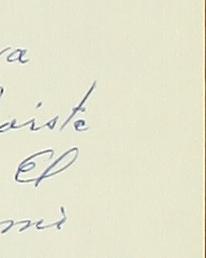 va
oiste
El
mi